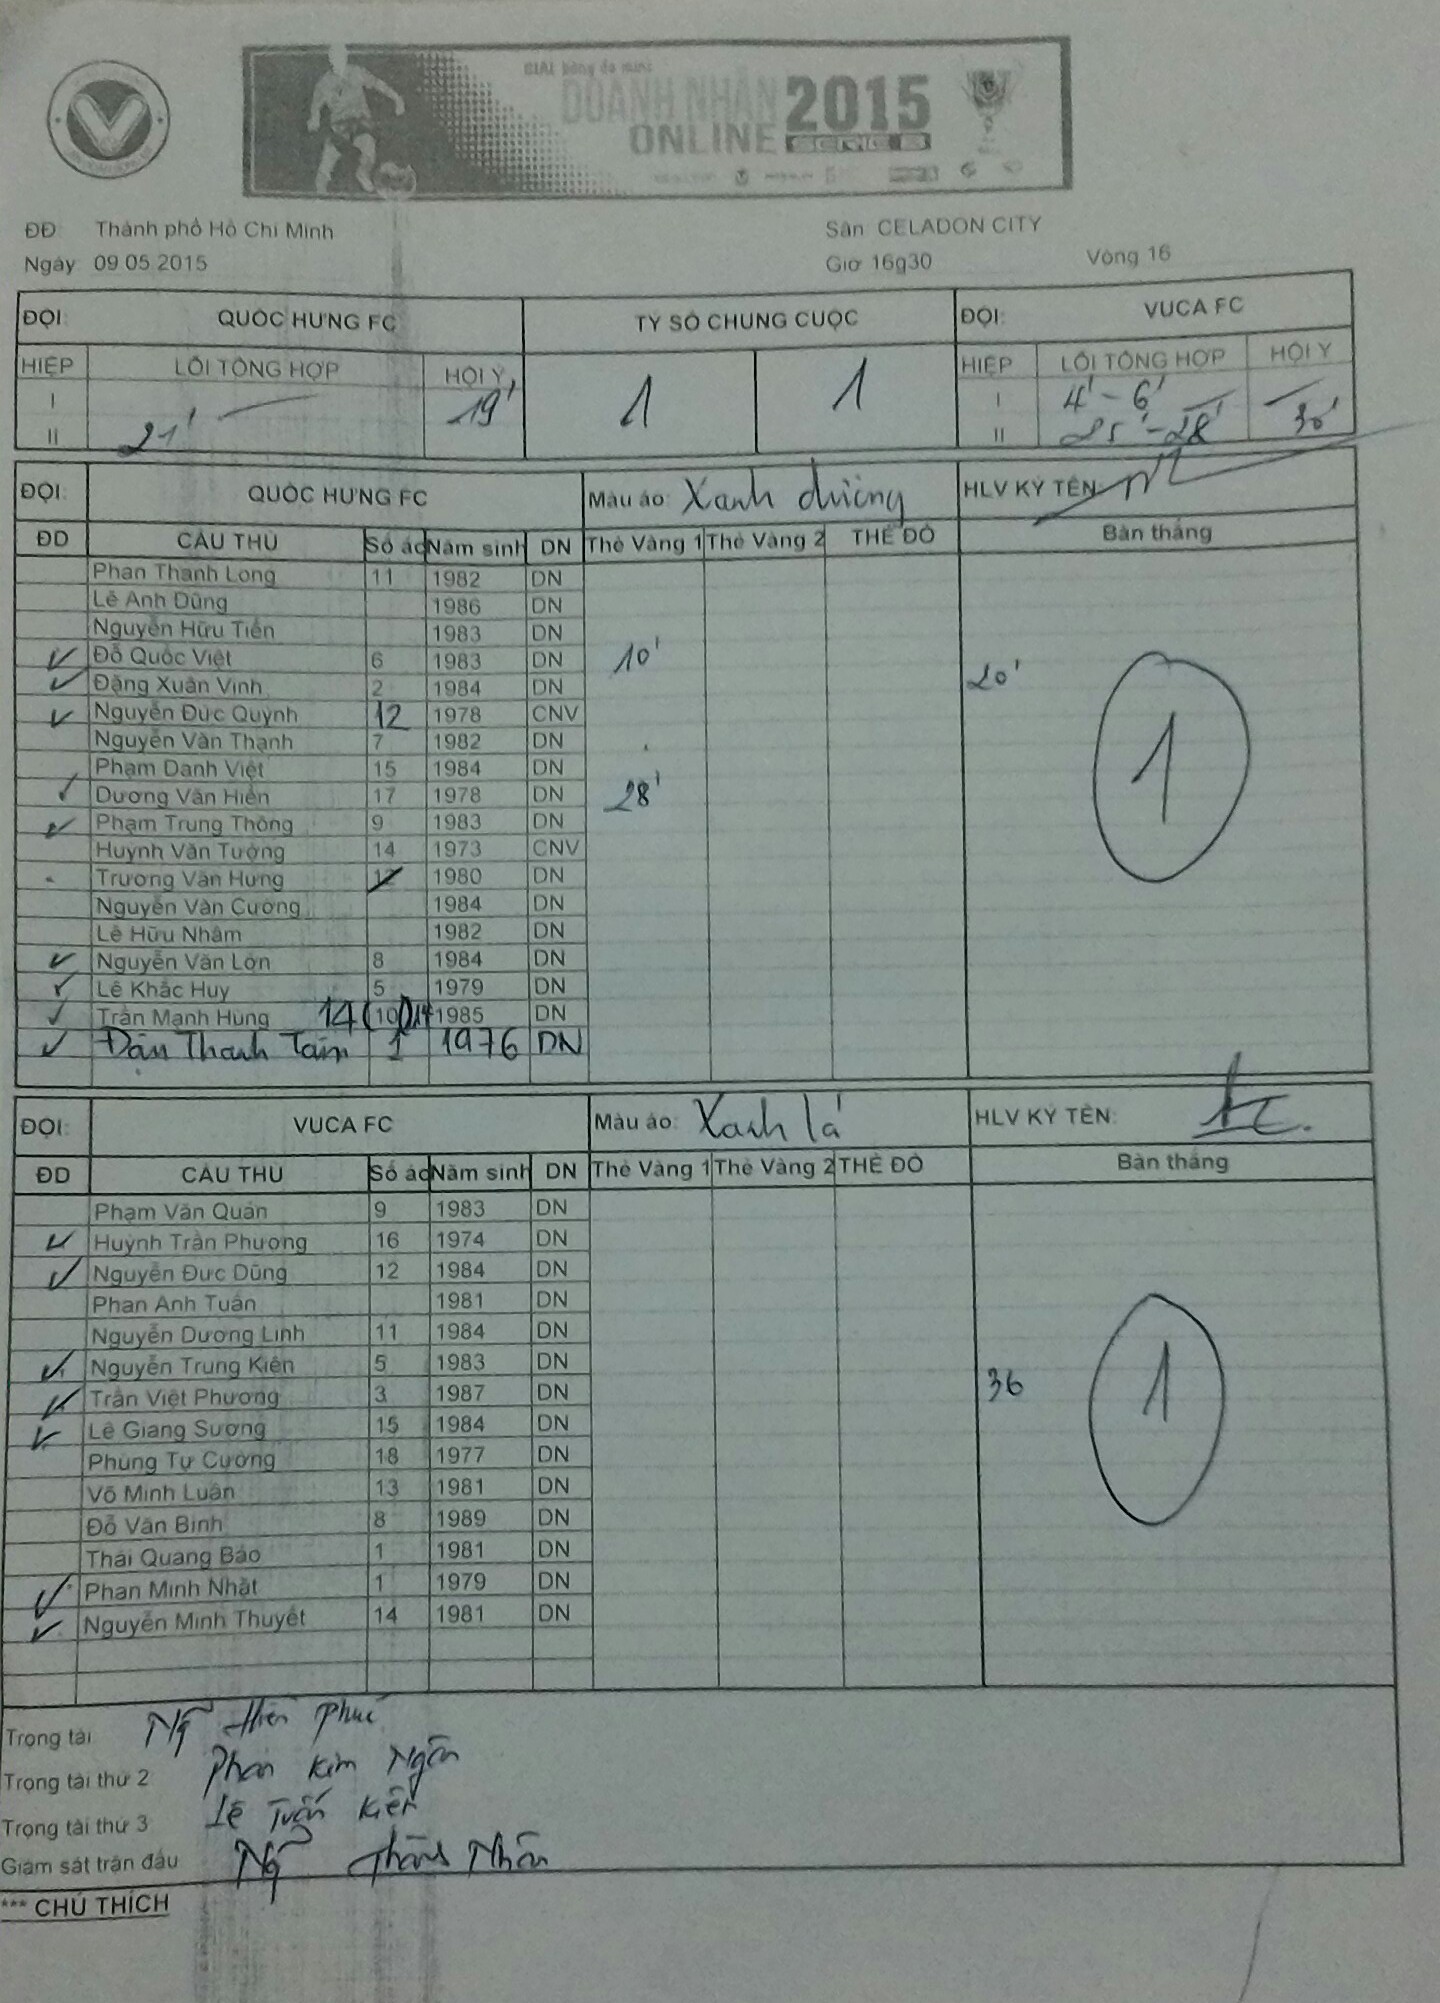 GIẢI bóng đá mini
DOANH NHÂN 2015
ONLINE SERIE B
ĐĐ Thành phố Hồ Chí Minh Sân CELADON CITY
Ngày 09 05 2015 Giờ 16g30 Vòng 16
ĐỘI: QUỐC HƯNG FC TỶ SỐ CHUNG CUỘC ĐỘI: VUCA FC
HIỆP LỖI TỔNG HỢP HỘI Ý 1 1 HIỆP LỖI TỔNG HỢP HỘI Ý
I — 19' I 4' - 6' — —
II 21' II 25' - 28' 30'
ĐỘI: QUỐC HƯNG FC Màu áo: Xanh dương HLV KÝ TÊN:
ĐD CẦU THỦ Số áo Năm sinh DN Thẻ Vàng 1 Thẻ Vàng 2 THẺ ĐỎ Bàn thắng
Phan Thanh Long 11 1982 DN
Lê Anh Dũng 1986 DN
Nguyễn Hữu Tiến 1983 DN
✓ Đỗ Quốc Việt 6 1983 DN 10'
✓ Đặng Xuân Vinh 2 1984 DN 20'
✓ Nguyễn Đức Quỳnh 12 1978 CNV
Nguyễn Văn Thạnh 7 1982 DN 1
Phạm Danh Việt 15 1984 DN
✓ Dương Văn Hiền 17 1978 DN 28'
✓ Phạm Trung Thông 9 1983 DN
Huỳnh Văn Tưởng 14 1973 CNV
Trương Văn Hưng 12 1980 DN
Nguyễn Văn Cường 1984 DN
Lê Hữu Nhâm 1982 DN
✓ Nguyễn Văn Lớn 8 1984 DN
✓ Lê Khắc Huy 5 1979 DN
✓ Trần Mạnh Hùng 14 (10) 14 1985 DN
✓ Đậu Thanh Tâm 1 1976 DN
ĐỘI: VUCA FC Màu áo: Xanh lá HLV KÝ TÊN:
ĐD CẦU THỦ Số áo Năm sinh DN Thẻ Vàng 1 Thẻ Vàng 2 THẺ ĐỎ Bàn thắng
Phạm Văn Quân 9 1983 DN
✓ Huỳnh Trần Phương 16 1974 DN
✓ Nguyễn Đức Dũng 12 1984 DN
Phan Anh Tuấn 1981 DN
Nguyễn Dương Linh 11 1984 DN
✓ Nguyễn Trung Kiên 5 1983 DN 36 1
✓ Trần Việt Phương 3 1987 DN
✓ Lê Giang Sương 15 1984 DN
Phùng Tự Cường 18 1977 DN
Võ Minh Luân 13 1981 DN
Đỗ Văn Bình 8 1989 DN
Thái Quang Bảo 1 1981 DN
✓ Phan Minh Nhật 1 1979 DN
✓ Nguyễn Minh Thuyết 14 1981 DN
Trọng tài Ng̃ Hiền Phúc
Trọng tài thứ 2 Phan Kim Ngân
Trọng tài thứ 3 Lê Tuấn Kiên
Giám sát trận đấu Ng̃ Thành Nhân
*** CHÚ THÍCH